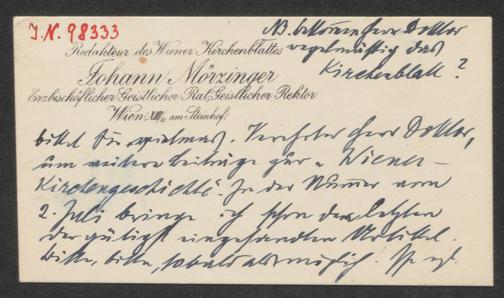 J.N. 98333
NB. bekommen Herr Doktor
regelmäßig das
Kirchenblatt?
Redakteur des Wiener Kirchenblattes
Johann Mörzinger
Erzbischöflicher Geistlicher Rat, Geistlicher Rektor
Wien, XIII/2 am Steinhof.
bittet Sie vielmals, Verehrter Herr Doktor,
um weitere Beiträge zur „Wiener-
Kirchengeschichte“. In der Nummer vom
2. Juli bringe ich schon den letzten
der gütigst eingesandten Artikel.
Bitte, bitte, sobald als möglich!